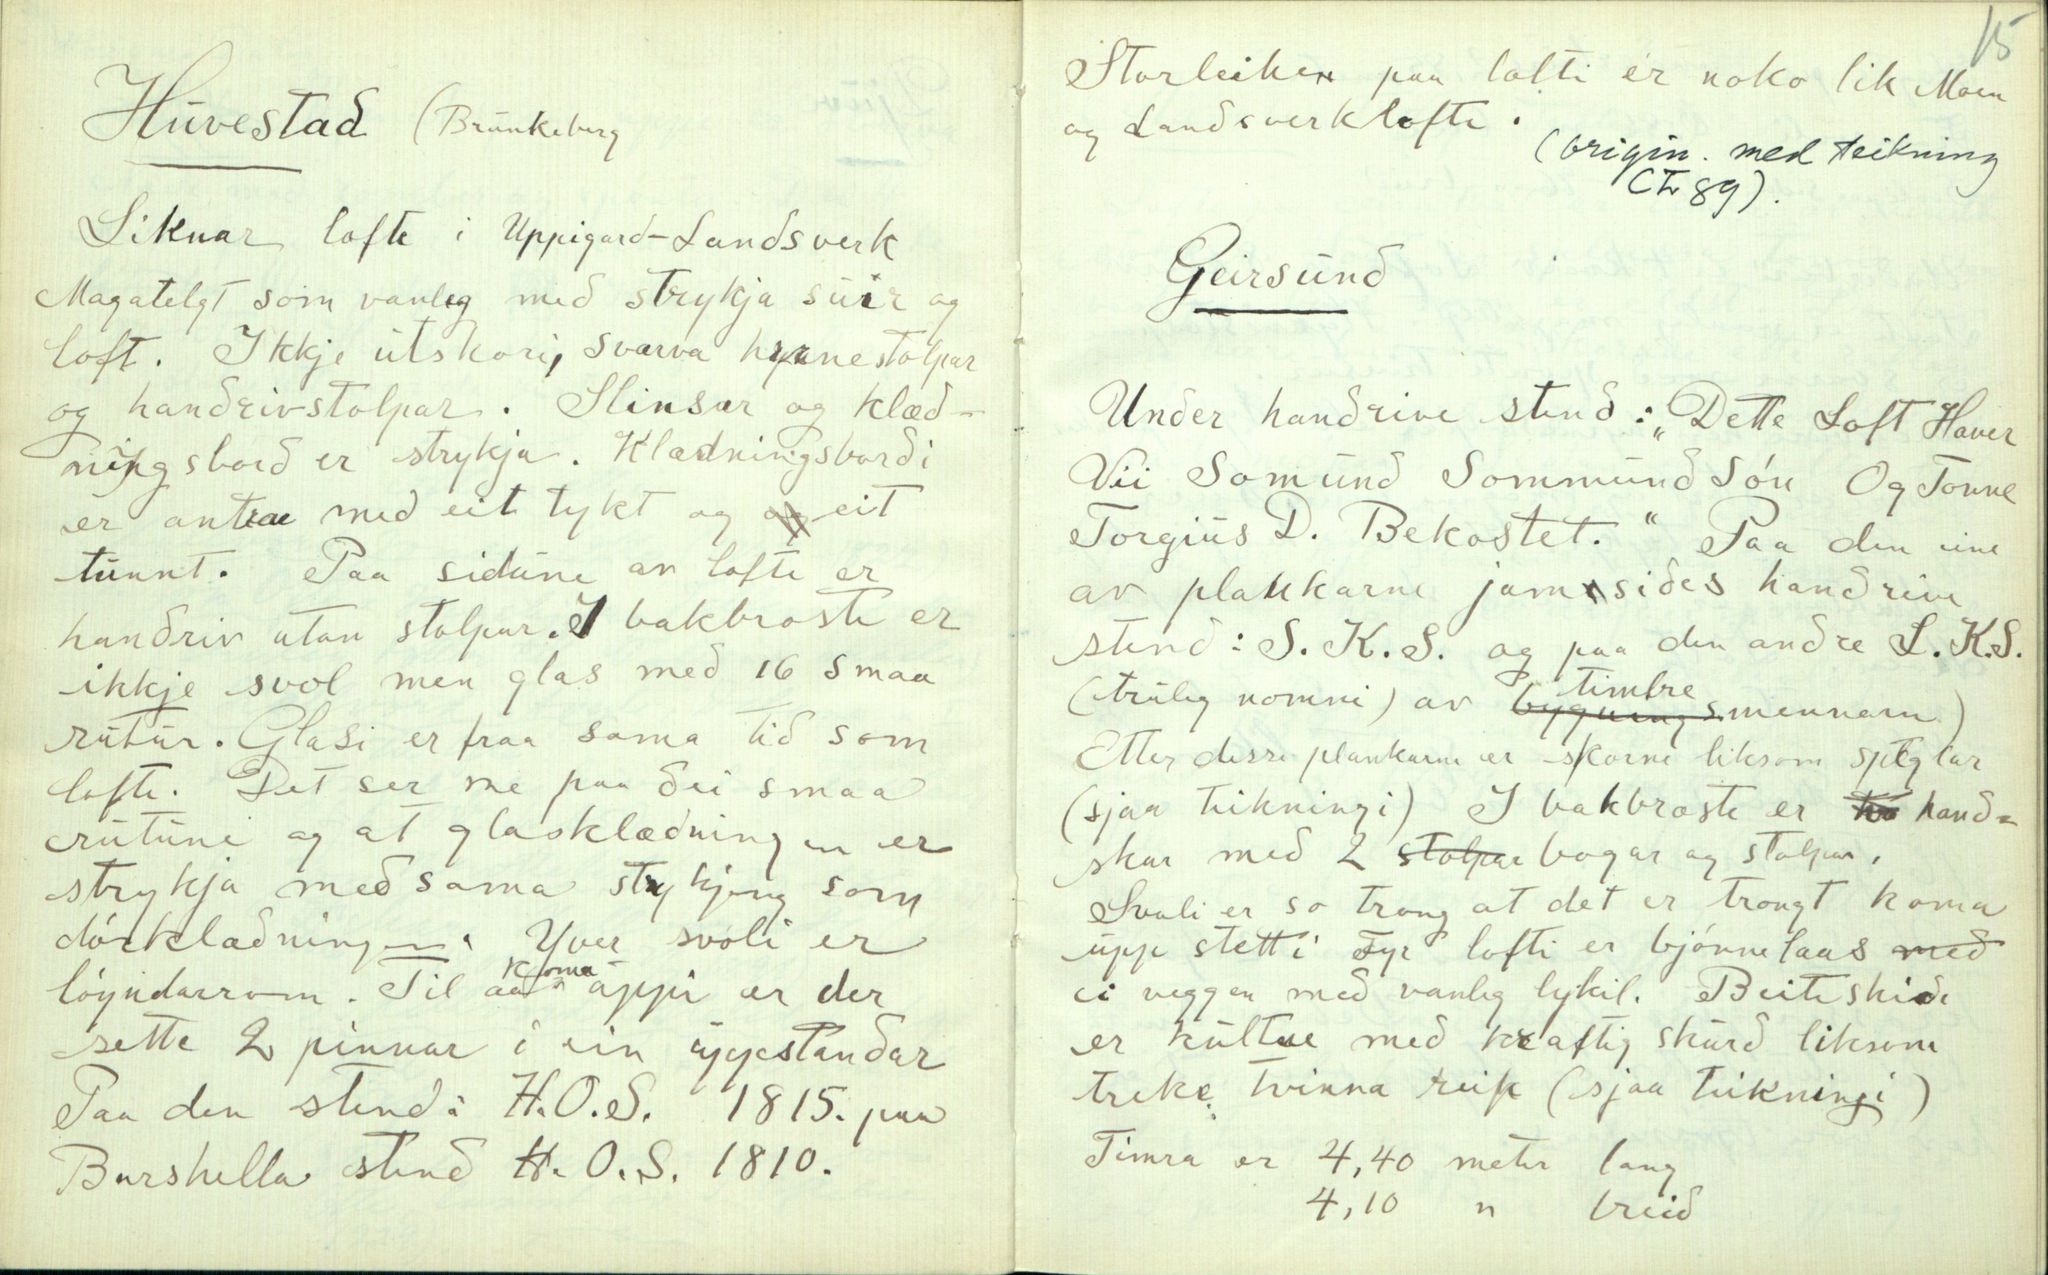 Huvestad (Brunkeberg
Liknar lofte i Uppigard-Landsverk
Magatelgt som vanleg med strykja suir og
loft. Ikkje utskori, svarva hyrnestolpar
og handrivstolpar. Slinsar og klæd-
ningsbord er strykja. Klædningsbordi
er antrae med eit tykt og eit
tunnt. Paa sidune av lofte er
handriv utan stolpar. I bakbroste er
ikkje svol men glas med 16 smaa
rutur. Glasi er fraa sama tid som
lofte. Det ser me paa dei smaa
rutune og at glasklædningen er
strykja med sama strykjing som
dórklædningen. Yver svoli er
lóyndarrom. Til aa koma uppi er der
sette 2 pinnar i ein uppstandar
Paa den stend: H.O.S. 1815. paa
Burshella stend H.O.S. 1810.
15
Storleiken paa lofti er noko lik Moen
og Landsverklofte.
(origin. med teikning
(Tr 89).
Geirsund
Under handrive stend: „Dette Loft Haver
Vii Somund Sommund Són Og Tonne
Torgius D. Bekostet." Paa den eine
av plankarne jamsides handrive
stend: S.K.S. og paa den andre L.K.S.
(truleg nomni) av bygnings timbremennarn)
Etter desse plankarne er skorne liksom speglar
(sjaa teikningi) I bakbroste er hand-
skar med 2 stolpar bogar og stolpar.
Svali er so trong at det er trongt koma
upp stetti Fyr lofti er bjónnelaas med
i veggen med vanleg lykil. Beiteskide
er kultue med kraftig skurd liksom
treke tvinna reip (sjaa teikningi)
Timra er 4,40 meter lang
4,10 " breid